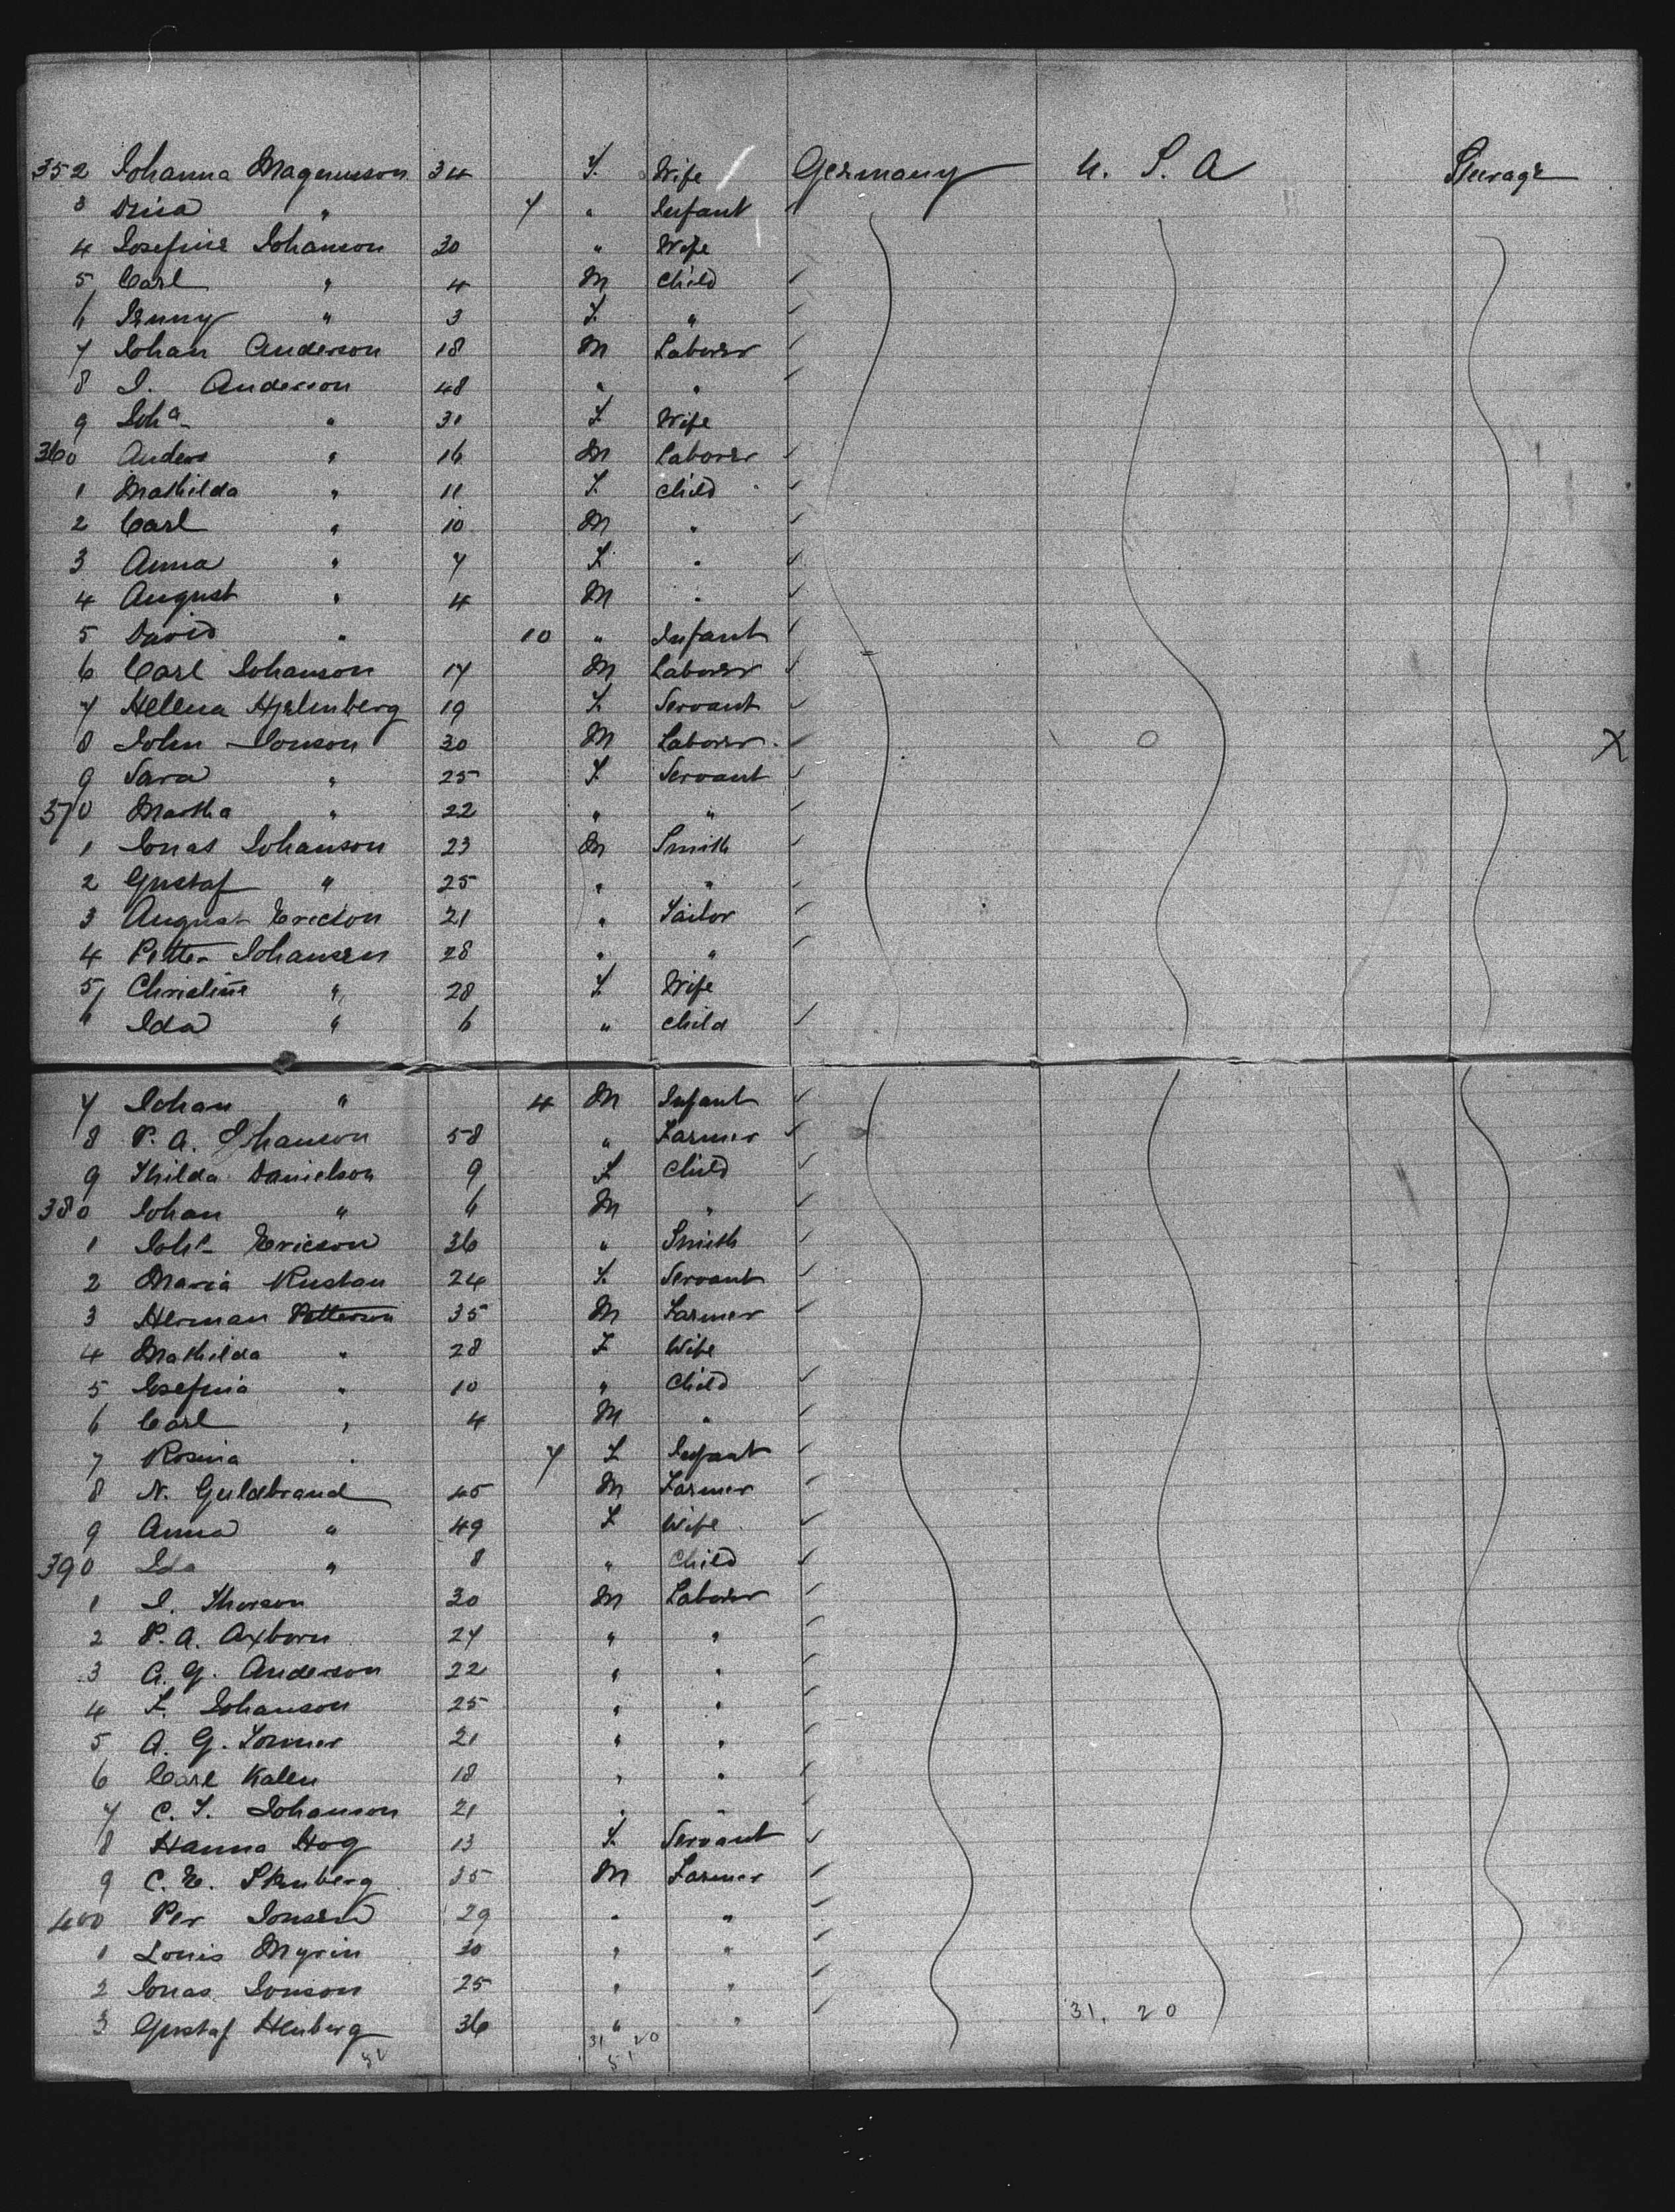 352 Johanna Magnusson 34 F. Wife Germany U. S. A Steerage
3 Dina " 7 " Infant
4 Josefine Johanson 30 " Wife
5 Carl " 4 M Child
6 Jenny " 3 F. "
7 Johan Anderson 18 M Laborer
8 J. Anderson 48 " "
9 Joha " 31 F Wife
360 Anders " 16 M Laborer
1 Mathilda " 11 F. Child
2 Carl " 10 M "
3 Anna " 7 F. "
4 August " 4 M "
5 David " 10 " Infant
6 Carl Johanson 17 M Laborer
7 Helena Hjelmberg 19 F. Servant
8 John Jonson 30 M Laborer. O X
9 Sara " 25 F. Servant
370 Martha " 22 " "
1 Jonas Johanson 23 M Smith
2 Gustaf " 25 " "
3 August Ericson 21 " Tailor
4 Petter Johansen 28 " "
5 Christine " 28 F. Wife
" Ida " 6 " Child
7 Johan " 4 M Infant
8 P. A. Johanson 58 " Farmer
9 Thilda Danielson 9 F Child
380 Johan " 6 M "
1 Ericson 36 " Smith
2 Maria 24 F. Servant
3 Herman Petterson 35 M Farmer
4 Mathilda " 28 F Wife
5 Josefina " 10 " Child
6 Carl " 4 M "
7 Rosina " 7 F Infant
8 N. Guldbrand 45 M Farmer
9 Anna " 49 F Wife
390 Ida " 8 " Child
1 J. Thorson 30 M Laborer
2 P. A. Axborn 24 " "
3 A. G. Anderson 22 " "
4 F. Johanson 25 " "
5 A. G. 21 " "
6 Carl Kalen 18 " "
7 C. F. Johanson 21 " "
8 Hanna Hog 13 F. Servant
9 C. E. Stenberg 35 M Farmer
400 Per Jonsen 29 " "
1 Louis Myrin 30 " "
2 Jonas Jonson 25 " "
3 Gustaf 36 " " 31, 20
31 20
51